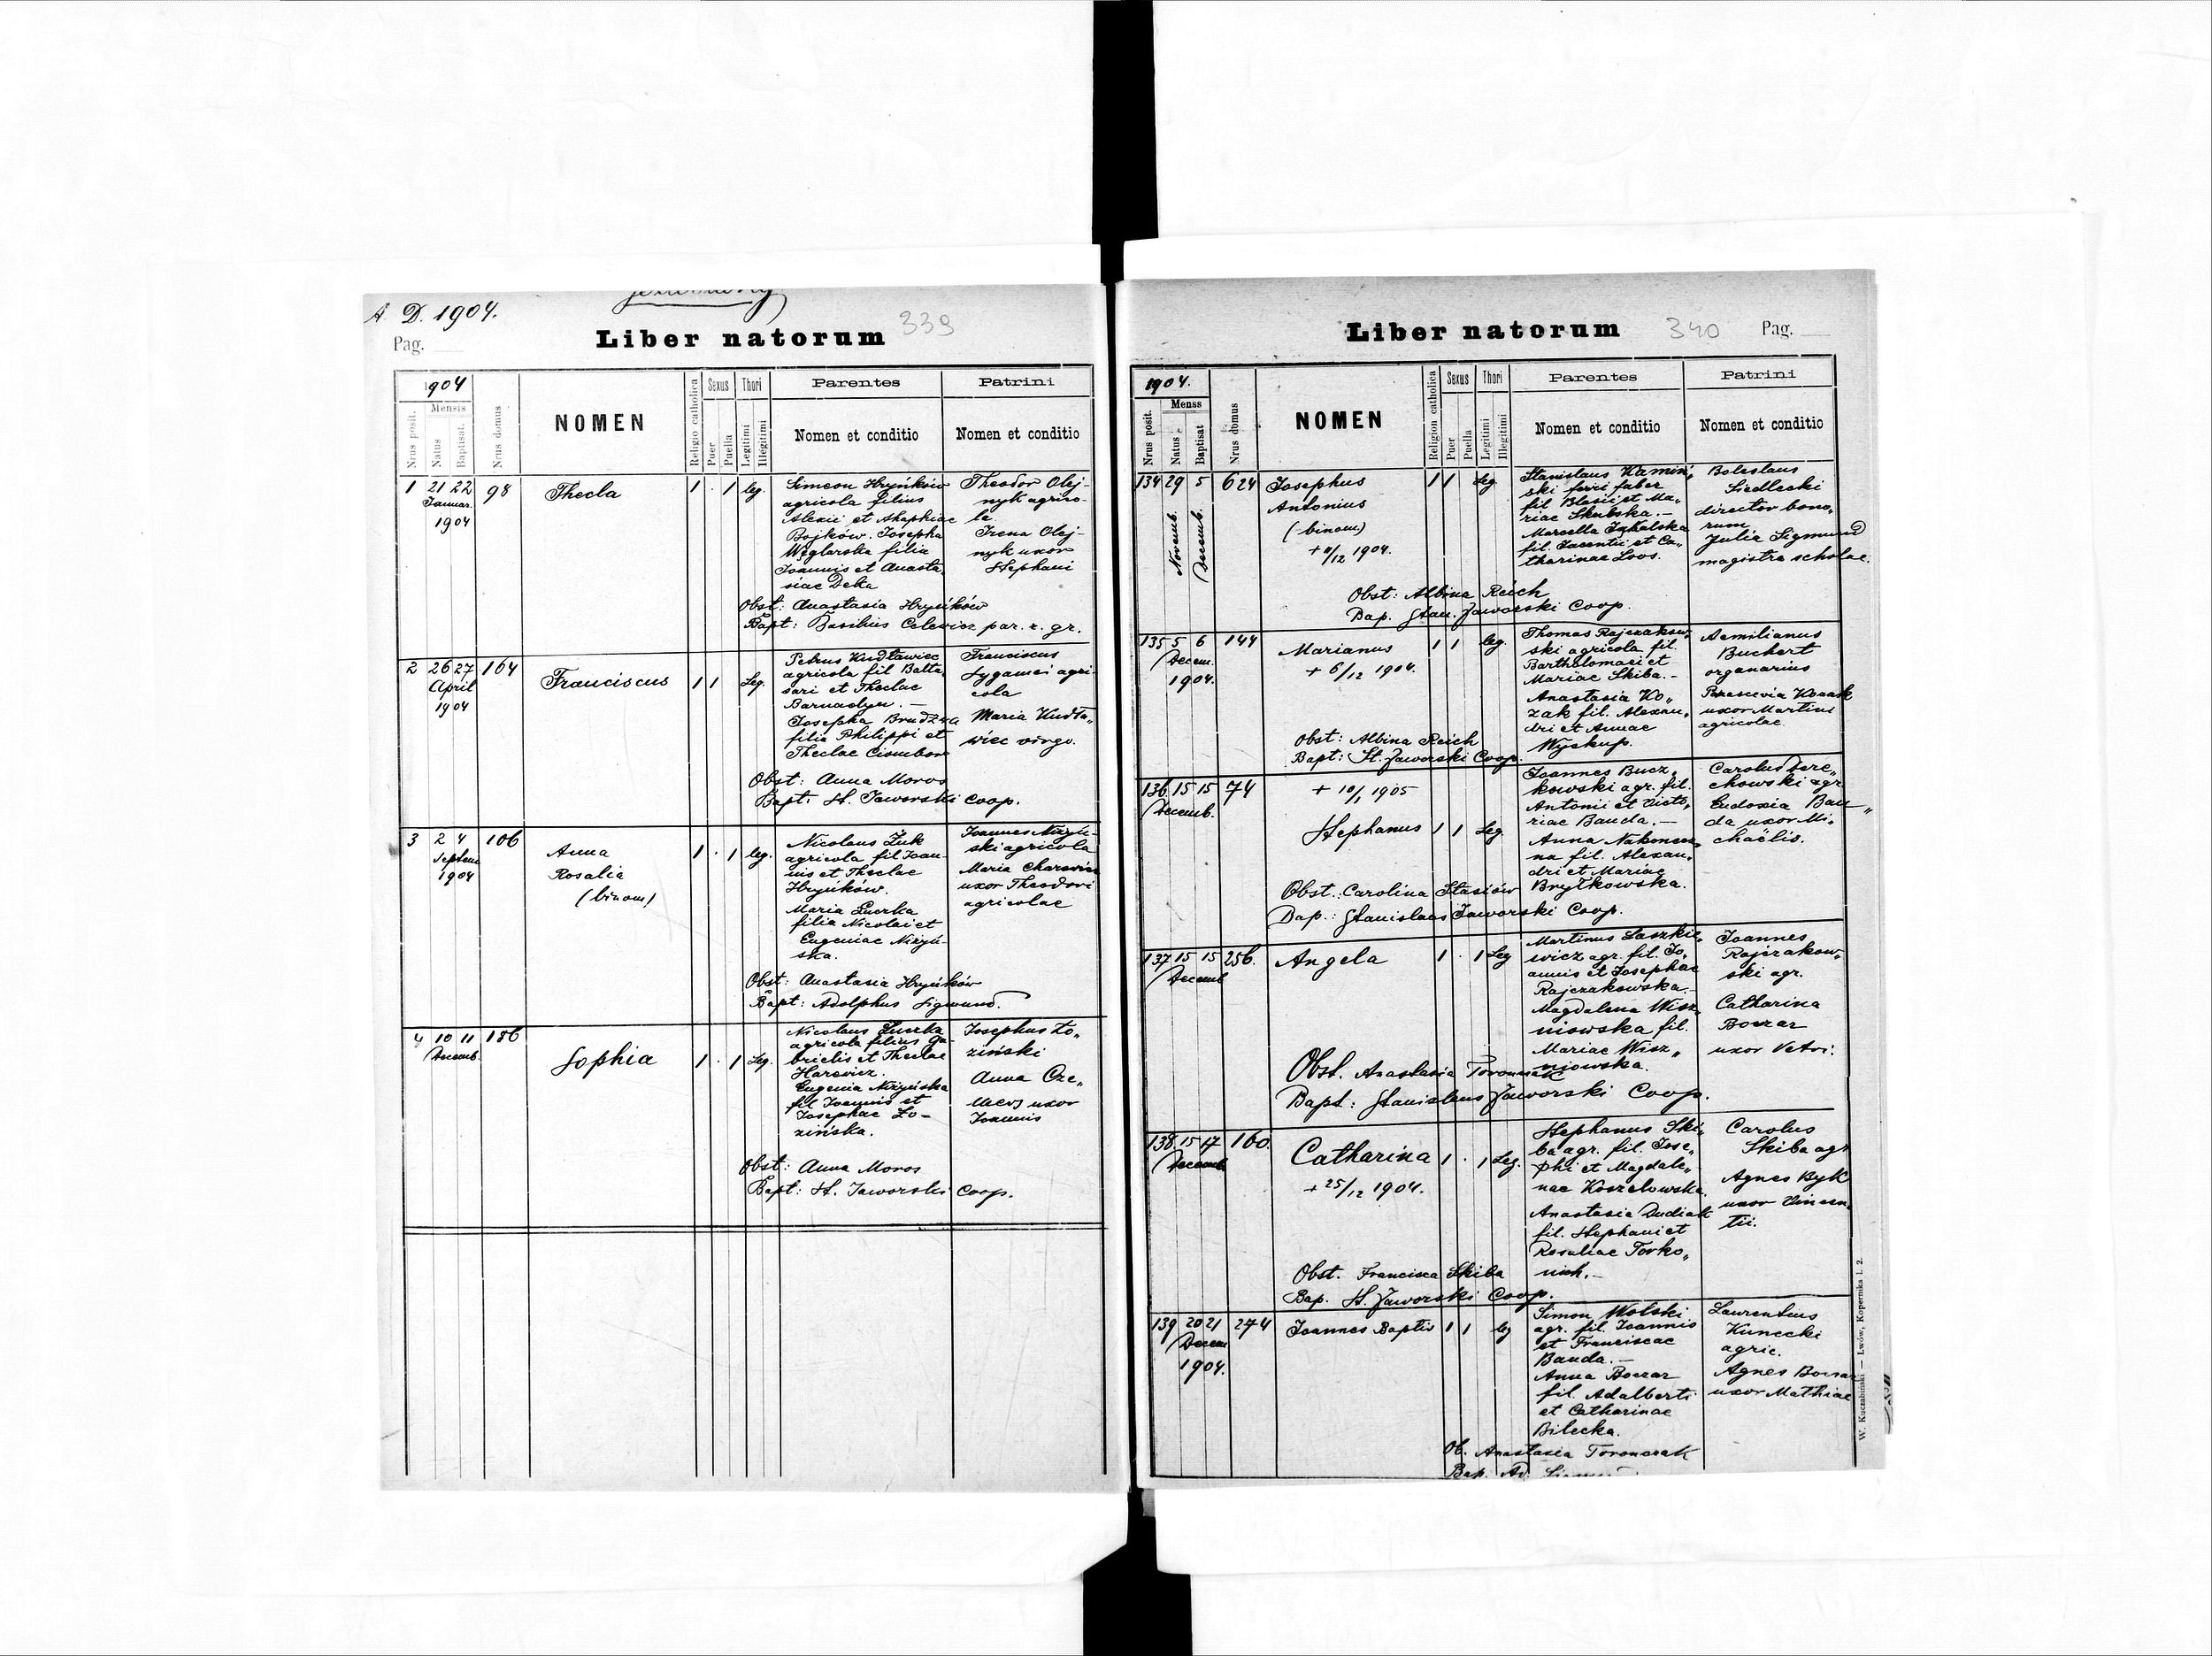 A D. 1904.
Pag.
Liber natorum 339
1904
Mensis
Nrus posit.
Natus
Baptisat.
Nrus domus
NOMEN
Religio catholica
Sexus
Puer
Puella
Thori
Legitimi
Illegitimi
Parentes
Nomen et conditio
Patrini
Nomen et conditio
1 21 22 98 Thecla 1 . 1 leg.
Januar.
1904
Simeon Hryńków
agricola filius
Alexii et Ahaphiae
Bojków. Josepha
Węglarska filia
Joannis et Anasta
siae Deka
Theodor Olej-
nyk agrico-
la
Irena Olej-
nyk uxor
Stephani
Obst: Anastasia Hryńków
Bapt: Basilius Celewicz par. r. gr.
2 26 27 164 Franciscus 1 1 Leg.
April
1904
Petrus Kudławiec
agricola fil Balta,
sari et Theclae
Barnadyn. —
Josepha Brudzwa
filia Philippi et
Theclae Ciombor
Franciscus
agri-
cola
Maria Kudła„
wiec virgo.
Obst: Anna Moros
Bapt: St. Jaworski coop.
3 2 4 106 Anna 1 . 1 leg.
Septem
1904
Rosalia
(binom)
Nicolaus Żuk
agricola fil Joan-
nis et Theclae
Hryńków.
Maria Łuczka
filia Nicolai et
Eugeniae Niżyń-
ska.
Joannes Niżyń-
ski agricola
Maria Charewicz
uxor Theodori
agricolae
Obst: Anastasia Hryńków
Bapt: Adolphus Sigmund.
4 10 11 186 Sophia 1 . 1 Leg.
Decemb.
Nicolaus Łuczka
agricola filius Ga-
brielis et Theclae
Harewicz.
Eugenia Niżyńska
fil Joannis et
Josephae Ło-
zińska.
Josephus Ło„
ziński
Anna Oze„
uxor
Joannis
Obst: Anna Moros
Bapt: St. Jaworski coop.
Liber natorum 340 Pag.
1904.
Menss
Nrus posit.
Natus
Baptisat
Nrus domus
NOMEN
Religion catholica
Sexus
Puer
Puella
Thori
Legitimi
Illegitimi
Parentes
Nomen et conditio
Patrini
Nomen et conditio
134 29 5 624 Josephus 1 1 Leg
Novemb.
Decemb.
Antonius
(binom)
+ 11/12 1904.
Stanislaus Kamiń„
ski ferri faber
fil Blasii et Ma„
riae Skubska. —
Marcella Igkalska
fil. Jacentii et Ca„
tharinae Loos.
Boleslaus
Siedlecki
director bono„
rum
Julia Sigmund
magistra scholae.
Obst: Albina Reich
Bap. Stan. Jaworski Coop.
135 5 6 144 Marianus 1 1 leg.
Decem.
1904.
+ 6/12 1904.
Thomas Rajczakow„
ski agricola fil.
Bartholomaei et
Mariae Skiba. —
Anastasia Ko„
zak fil. Alexan„
dri et Annae
Wyskup.
Aemilianus
Buchert
organarius
Parascevia Kozak
uxor Martini
agricolae.
Obst: Albina Reich
Bapt: St. Jaworski Coop.
136 15 15 74 + 10/1 1905
Decemb.
Stephanus 1 1 Leg.
Joannes Bucz„
kowski agr. fil.
Antonii et Victo„
riae Banda. —
Anna Nakonecz„
na fil. Alexan„
dri et Mariae
Brytkowska.
Carolus Bere„
chowski agr
Eudoxia Ban„
da uxor Mi„
chaëlis.
Obst: Carolina Stasiów
Bap: Stanislaus Jaworski Coop.
137 15 15 256. Angela 1 . 1 Leg
Decemb
Martinus Laszkie„
wicz agr. fil. Jo„
annis et Josephae
Rajczakowska.
Magdalena Wisz„
niowska fil.
Mariae Wisz„
niowska.
Joannes
Rajczakow„
ski agr.
Catharina
Boczar
uxor Petri.
Obst. Anastasia Toronczak
Bapt: Stanislaus Jaworski Coop.
138 15 17 160. Catharina 1 . 1 Leg.
Decemb.
+ 25/12 1904.
Stephanus Ski„
ba agr. fil. Jose„
phi et Magdale„
nae Koszelowska.
Anastasia Dudiak
fil. Stephani et
Rosaliae Torko„
nich. —
Carolus
Skiba agr
Agnes Byk
uxor Vincen„
tii.
Obst. Francisca Skiba
Bap. St. Jaworski Coop.
139 20 21 274 Joannes Baptis 1 1 leg
Decem
1904.
Simon Wolski
agr. fil. Joannis
et Franciscae
Banda. —
Anna Boczar
fil. Adalberti
et Catharinae
Bilecka.
Laurentius
Kunecki
agric.
Agnes Boczar
uxor Mathiae
Ob. Anastasia Toronczak
Bap. Ad.
W. Kuczabiński — Lwów, Kopernika l. 2.